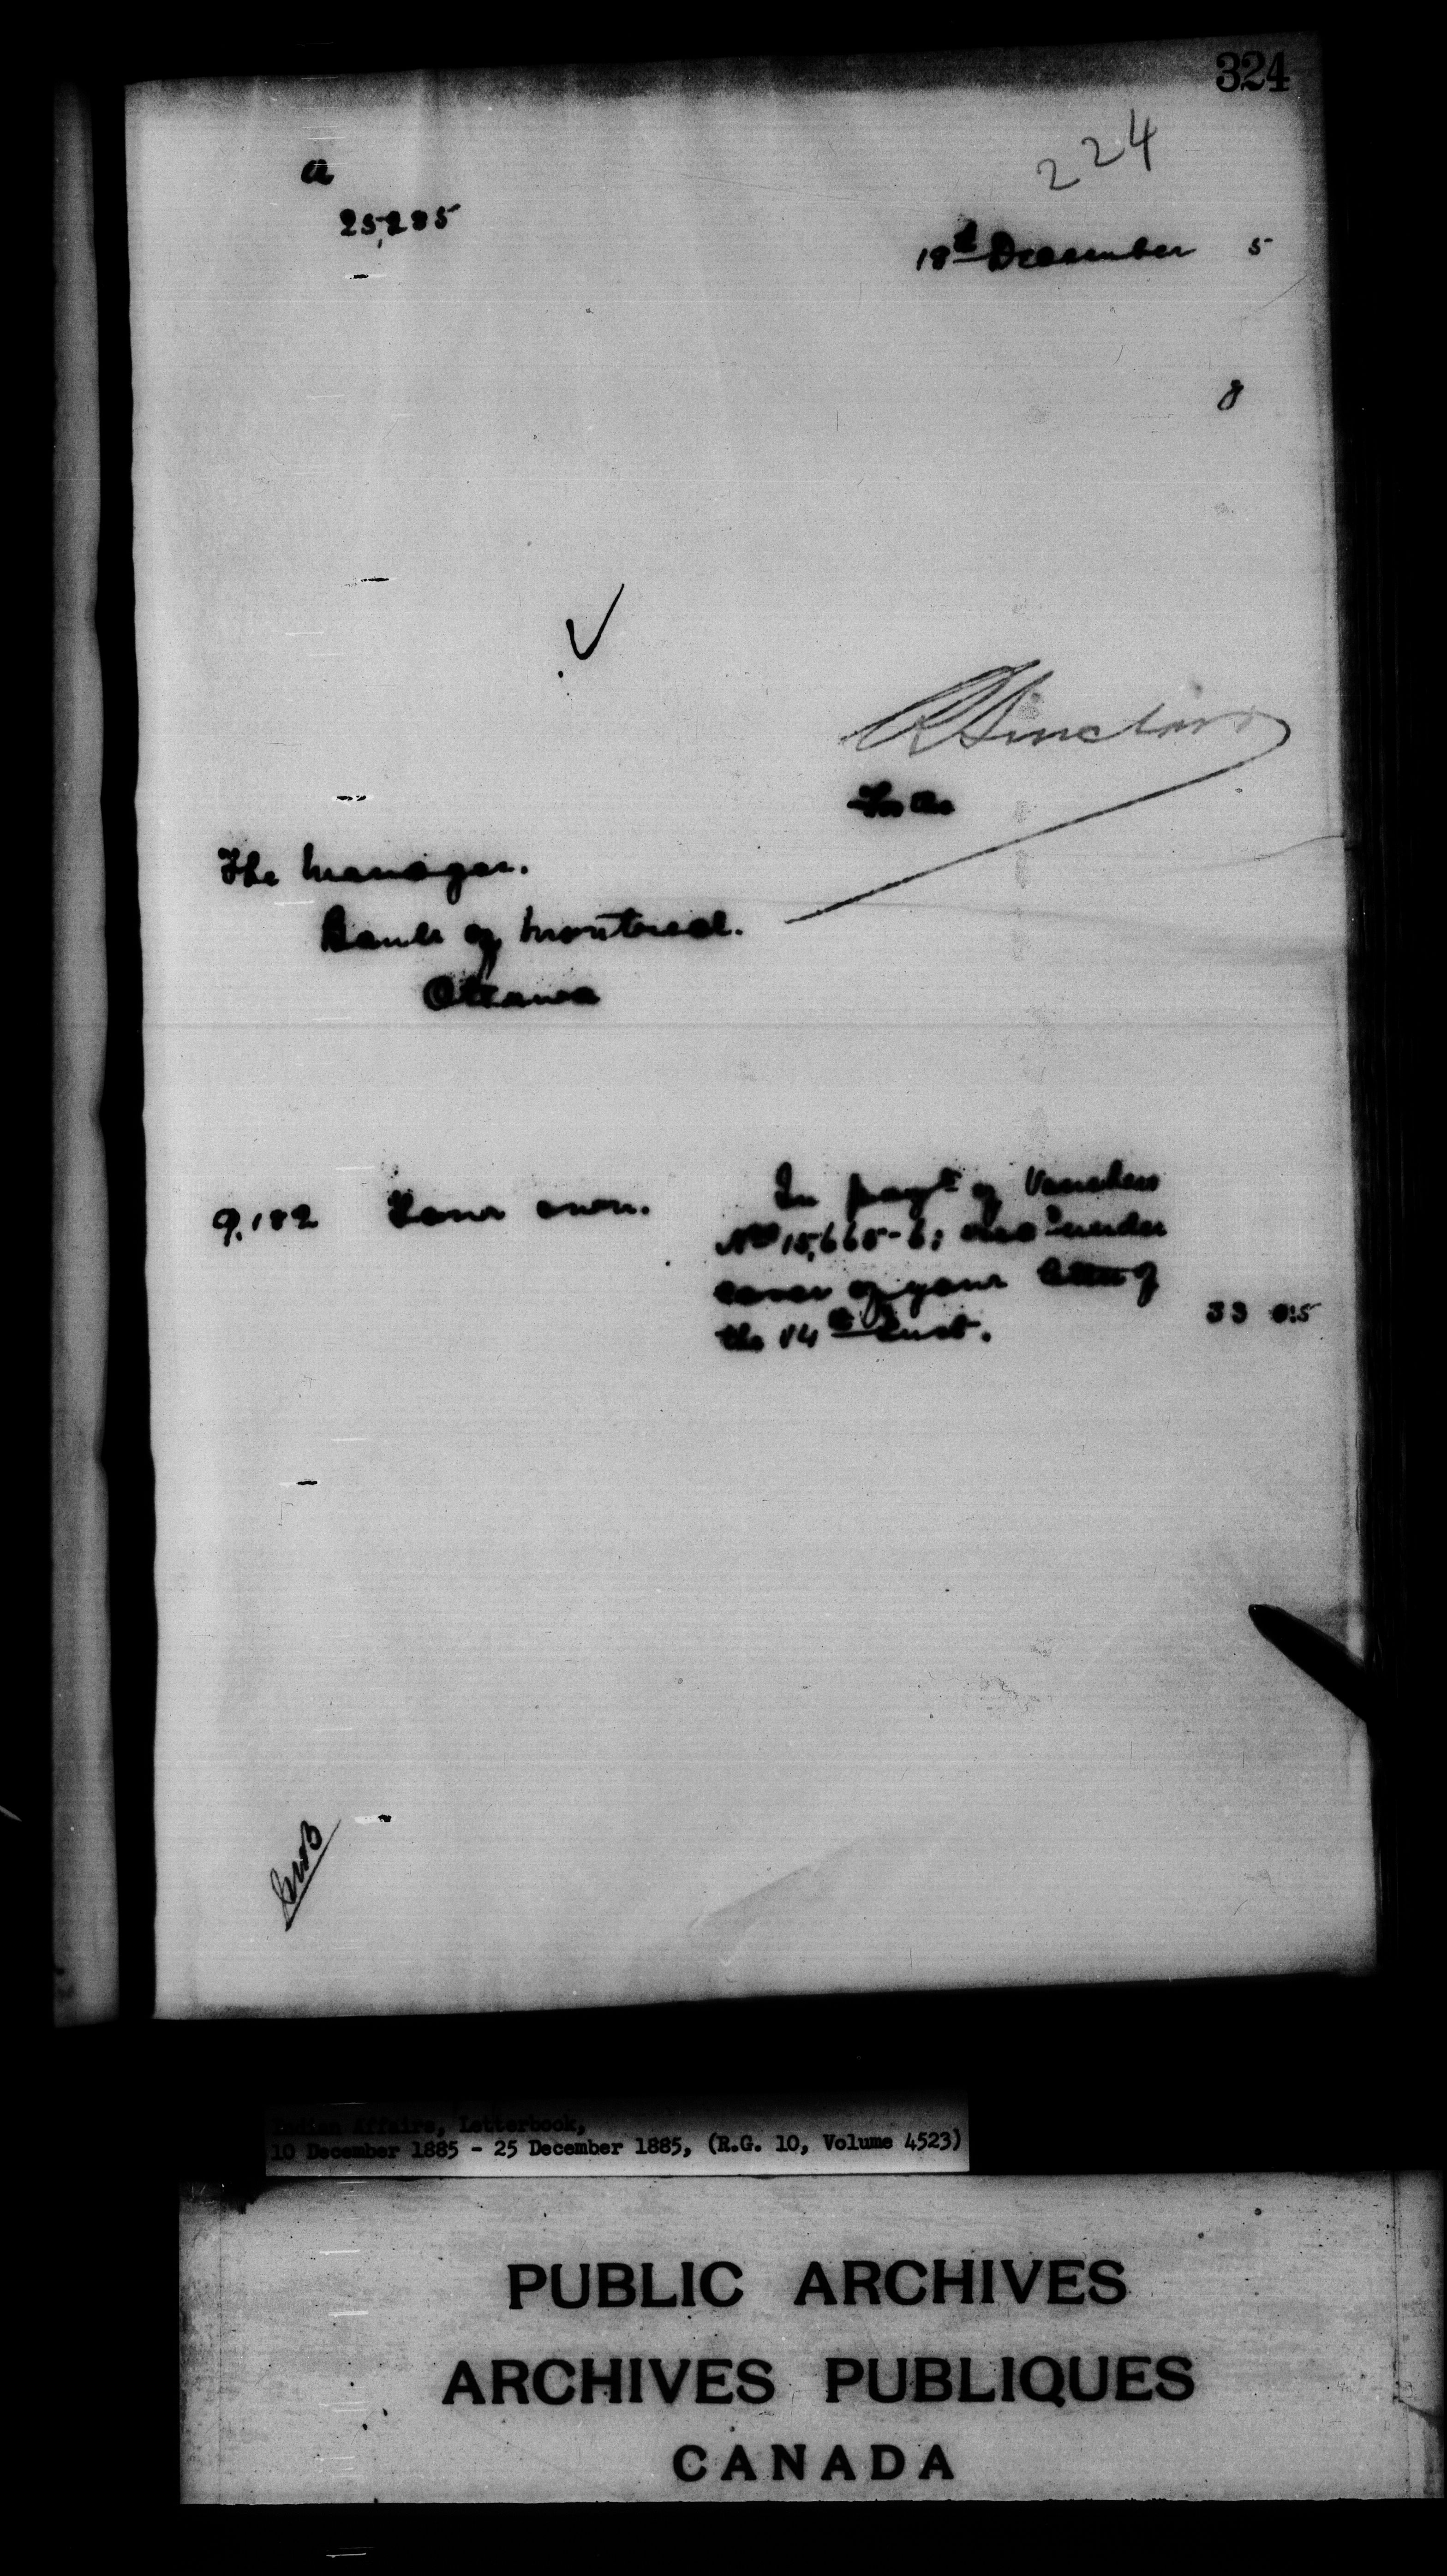 324
224
a
25,285
18th December 5
8
R Sinclair
For the
The Manager.
Bank of Montreal.
Ottawa
9,182 Your own. In payt of Vouchers
Nos 15,665-6; recd under
cover of your letter of
the 14th Inst. 33 05
Indian Affairs, Letterbook,
10 December 1885 - 25 December 1885, (R.G. 10, Volume 4523)
PUBLIC ARCHIVES
ARCHIVES PUBLIQUES
CANADA